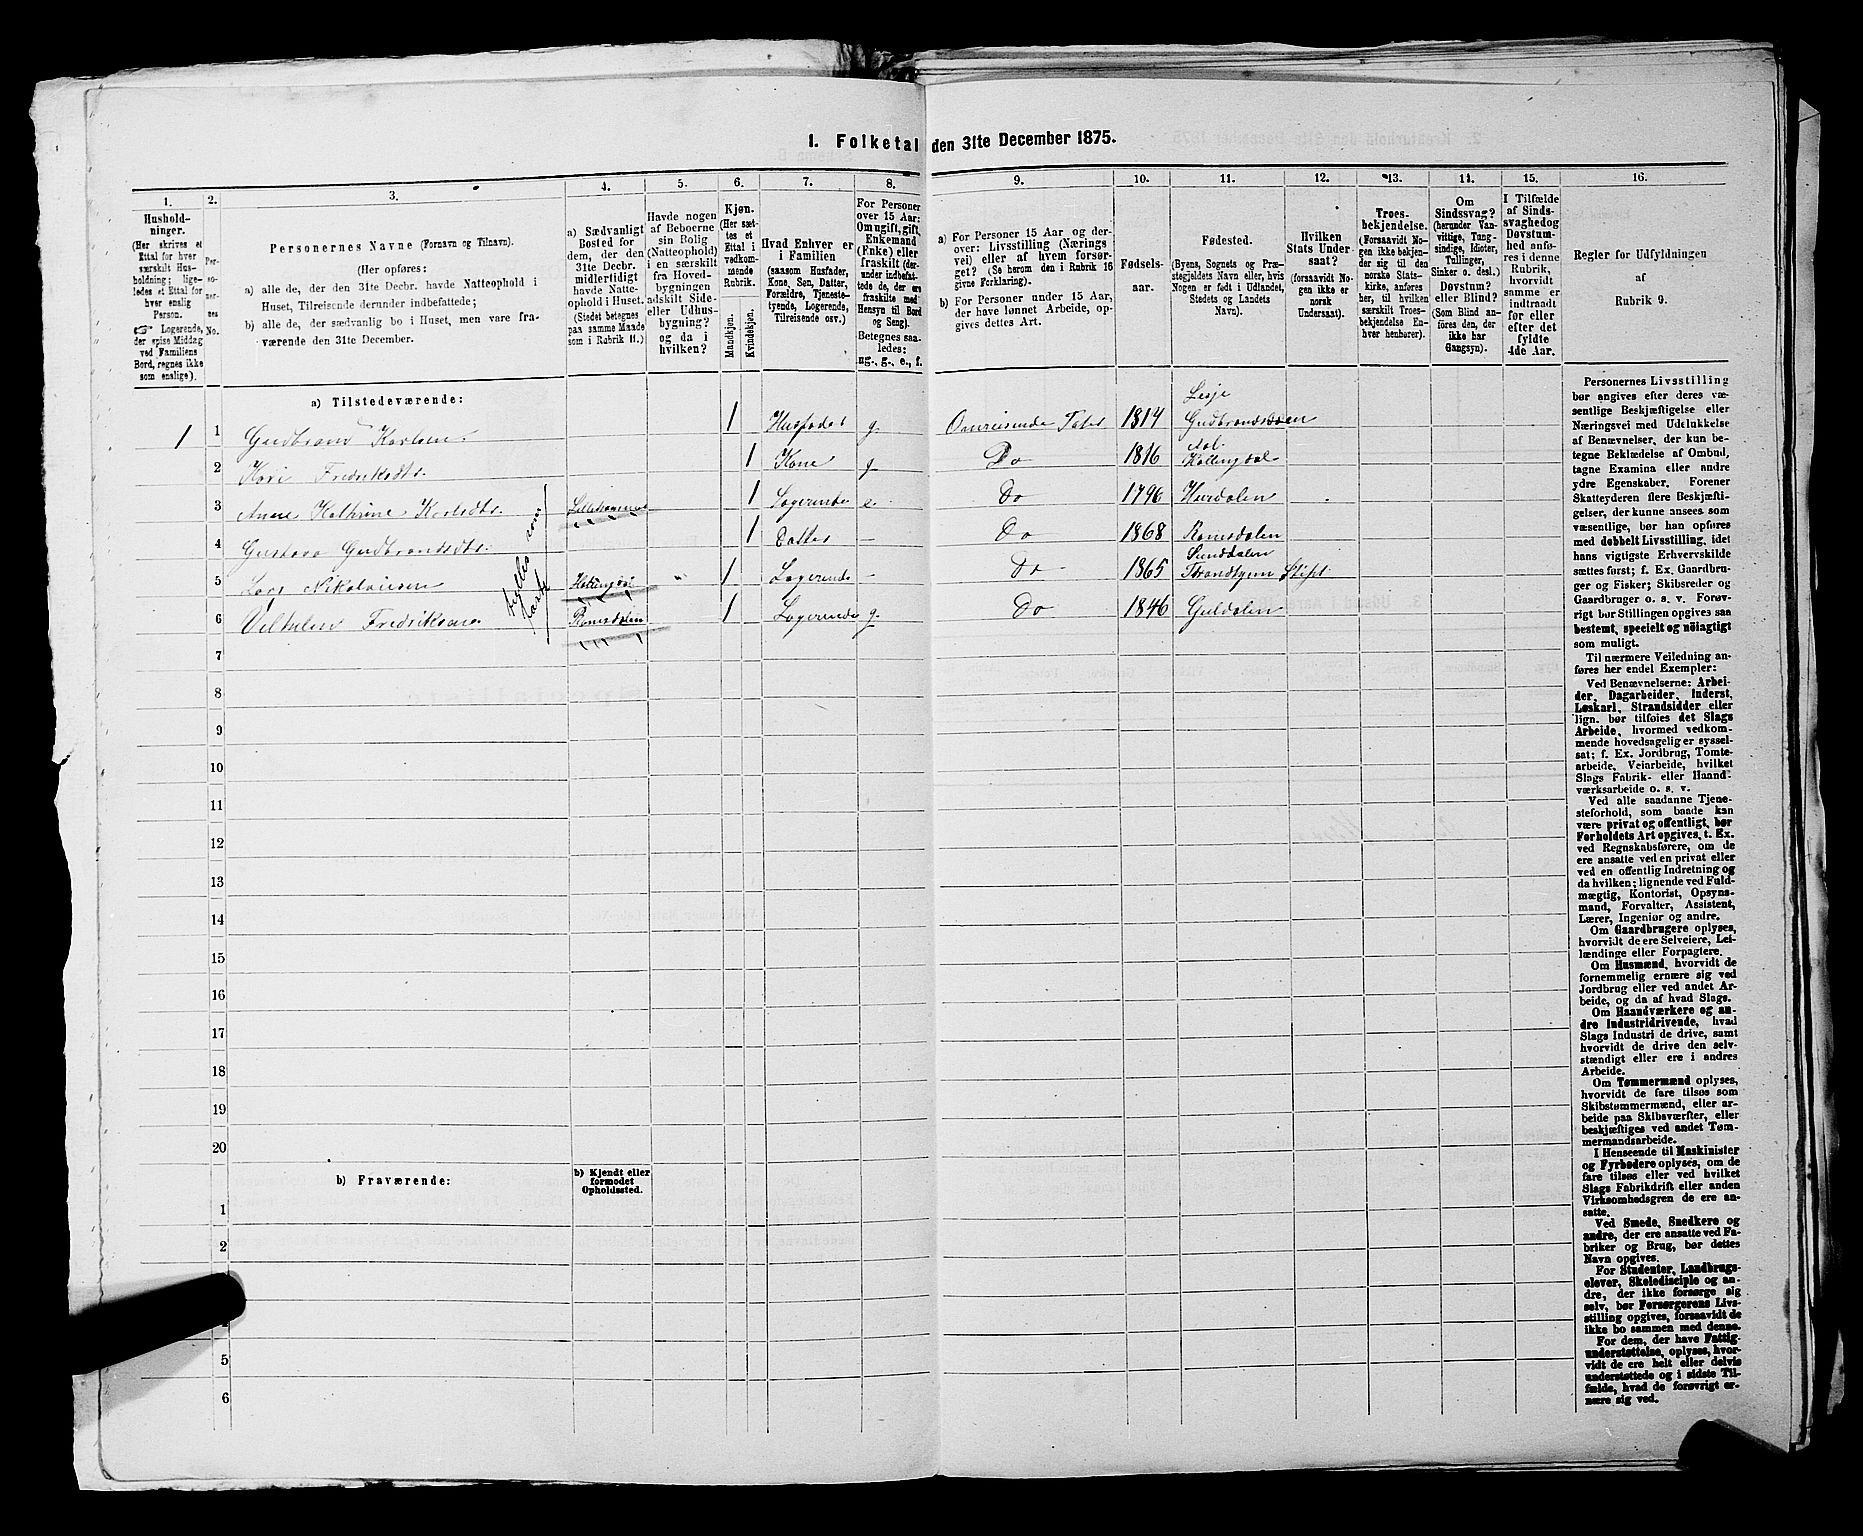 1. Folketal den 31te December 1875.
1. 2. 3. 4. 5. 6. 7. 8. 9. 10. 11. 12. 13. 14. 15. 16.
Hushold-
ninger.
(Her skrives et
Ettal for hver
særskilt Hus-
holdning; lige-
ledes et Ettal for
hver enslig
Person.
☞ Logerende,
der spise Middag
ved Familiens
Bord, regnes ikke
som enslige).
Per-
so-
ner-
nes
No.
Personernes Navne (Fornavn og Tilnavn).
(Her opføres:
a) alle de, der den 31te Decbr. havde Natteophold i
Huset, Tilreisende derunder indbefattede;
b) alle de, der sædvanlig bo i Huset, men vare fra-
værende den 31te December.
a) Sædvanligt
Bosted for
dem, der den
31te Decbr.
midlertidigt
havde Natte-
ophold i Huset.
(Stedet betegnes
paa samme Maade
som i Rubrik 11.)
Havde nogen
af Beboerne
sin Bolig
(Natteophold)
i en særskilt
fra Hoved-
bygningen
adskilt Side-
eller Udhus-
bygning?
og da i
hvilken?
Kjøn.
(Her sæt-
tes et
Ettal i
vedkom-
mende
Rubrik.
Mandkjøn.
Kvindekjøn.
Hvad Enhver er
i Familien
(saasom Husfader,
Kone, Søn, Datter,
Forældre, Tjeneste-
tyende, Logerende,
Tilreisende osv.)
For Personer
over 15 Aar:
Om ugift, gift,
Enkemand
(Enke) eller
fraskilt (der-
under indbefat-
tede de, der ere
fraskilte med
Hensyn til Bord
og Seng).
Betegnes saa-
ledes:
ug., g., e., f.
a) For Personer 15 Aar og der-
over: Livsstilling (Nærings
vei) eller af hvem forsør-
get? (Se herom den i Rubrik 16
givne Forklaring).
b) For Personer under 15 Aar,
der have lønnet Arbeide, op-
gives dettes Art.
Fødsels-
aar.
Fødested.
(Byens, Sognets og Præ-
stegjeldets Navn eller, hvis
Nogen er født i Udlandet,
Stedets og Landets
Navn).
Hvilken
Stats Under-
saat?
(forsaavidt No-
gen ikke er
norsk
Undersaat).
Troes-
bekjendelse.
(Forsaavidt Nogen
ikke bekjen-
der sig til den
norske Stats-
kirke, anføres
her, til hvilken
særskilt Troes-
bekjendelse En-
hver henhører).
Om
Sindssvag?
(herunder Van-
vittige, Tung-
sindige, Idioter,
Tullinger,
Sinker o. desl.)
Døvstum?
eller Blind?
(Som Blind an-
føres den, der
ikke har
Gangsyn).
I Tilfælde
af Sinds-
svaghed og
Døvstum-
hed anfø-
res i denne
Rubrik,
hvorvidt
samme er
indtraadt
før eller
efter det
fyldte
4de Aar.
Regler for Udfyldningen
af
Rubrik 9.
a) Tilstedeværende:
1 1 Gudbrand Karlsen 1 Husfader g. Omreisende Tater 1814 Lesje Gudbrandsdalen
2 Kari Fredriksdtr. 1 Kone g. Do 1816 Aal Hallingdal
3 Anne Kathrine Karlsdtr. Lillehammer 1 Logerende e. Do 1796 Hurdalen
4 Gustava Gudbrandsdtr. 1 Datter — Do 1868 Romsdalen
5 Lars Nikolaisen Hallingdal " 1 Logerende — Do 1865 Sunddalen Throndhjem Stift
6 Vilhelm Fredriksen Romsdalen 1 Logerende g. Do 1846 Guldalen
7
8
9
10
11
12
13
14
15
16
17
18
19
20
b) Fraværende:
b) Kjendt eller
formodet
Opholdssted.
1
2
5
6
Personernes Livsstilling
bør angives efter deres væ-
sentlige Beskjæftigelse eller
Næringsvei med Udelukkelse
af Benævnelser, der kun be-
tegne Beklædelse af Ombud,
tagne Examina eller andre
ydre Egenskaber. Forener
Skatteyderen flere Beskjæfti-
gelser, der kunne ansees som
væsentlige, bør han opføres
med dobbelt Livsstilling, idet
hans vigtigste Erhvervskilde
sættes først; f. Ex. Gaardbru-
ger og Fisker; Skibsreder og
Gaardbruger o. s. v. Forøv-
rigt bør Stillingen opgives saa
bestemt, specielt og nöiagtigt
som muligt.
Til nærmere Veiledning an-
føres her endel Exempler:
Ved Benævnelserne: Arbei-
der, Dagarbeider, Inderst,
Løskarl, Strandsidder eller
lign. bør tilføies det Slags
Arbeide, hvormed vedkom-
mende hovedsagelig er syssel-
sat; f. Ex. Jordbrug, Tomte-
arbeide, Veiarbeide, hvilket
Slags Fabrik- eller Haand-
værksarbeide o. s. v.
Ved alle saadanne Tjene-
steforhold, som baade kan
være privat og offentligt, bør
Forholdets Art opgives, t. Ex.
ved Regnskabsførere, om de
ere ansatte ved en privat eller
ved en offentlig Indretning og
da hvilken; lignende ved Fuld-
mægtig, Kontorist, Opsyns-
mand, Forvalter, Assistent,
Lærer, Ingeniør og andre.
Om Gaardbrugere oplyses,
hvorvidt de ere Selveiere, Lei-
lændinge eller Forpagtere.
Om Husmænd, hvorvidt de
fornemmelig ernære sig ved
Jordbrug eller ved andet Ar-
beide, og da af hvad Slags.
Om Haandværkere og an-
dre Industridrivende, hvad
Slags Industri de drive, samt
hvorvidt de drive den selv-
stændigt eller ere i andres
Arbeide.
Om Tømmermænd oplyses,
hvorvidt de fare tilsøs som
Skibstømmermænd, eller ar-
beide paa Skibsværfter, eller
beskjæftiges ved andet Tøm-
mermandsarbeide.
I Henseende til Maskinister
og Fyrbødere oplyses, om de
fare tilsøs eller ved hvilket
Slags Fabrikdrift eller anden
Virksomhedsgren de ere an-
satte.
Ved Smede, Snedkere og
andre, der ere ansatte ved Fa-
briker og Brug, bør dettes
Navn opgives.
For Studenter, Landbrugs-
elever, Skoledisciple og an-
dre, der ikke forsørge sig
selv, bør Forsørgerens Livs-
stilling opgives, forsaavidt de
ikke bo sammen med denne.
For dem, der have Fattig-
understøttelse, oplyses, hvor-
vidt de ere helt eller delvis
understøttede og i sidste Til-
fælde, hvad de forøvrigt er-
nære sig ved.